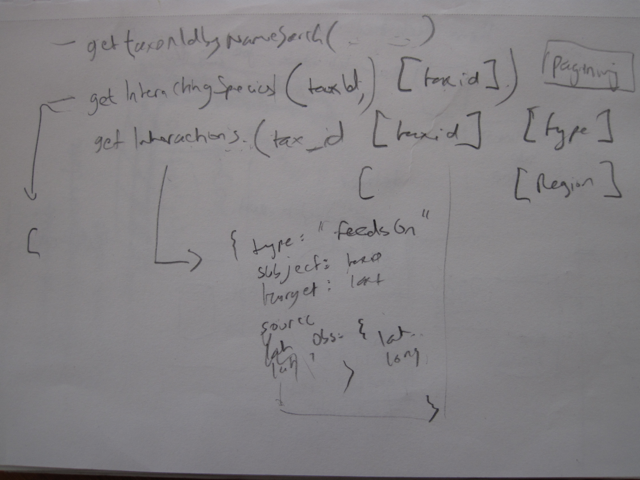 - getTaxonIdbyNameSearch( .. .. )
- getInteractingSpecies( taxId, ) [taxid].) paging
getInteractions.(tax_id [taxid] [type]
[ [Region]
[
{ type: "feedsOn"
subject: taxo
target:
source
lat obs: { lat.
long
}
}